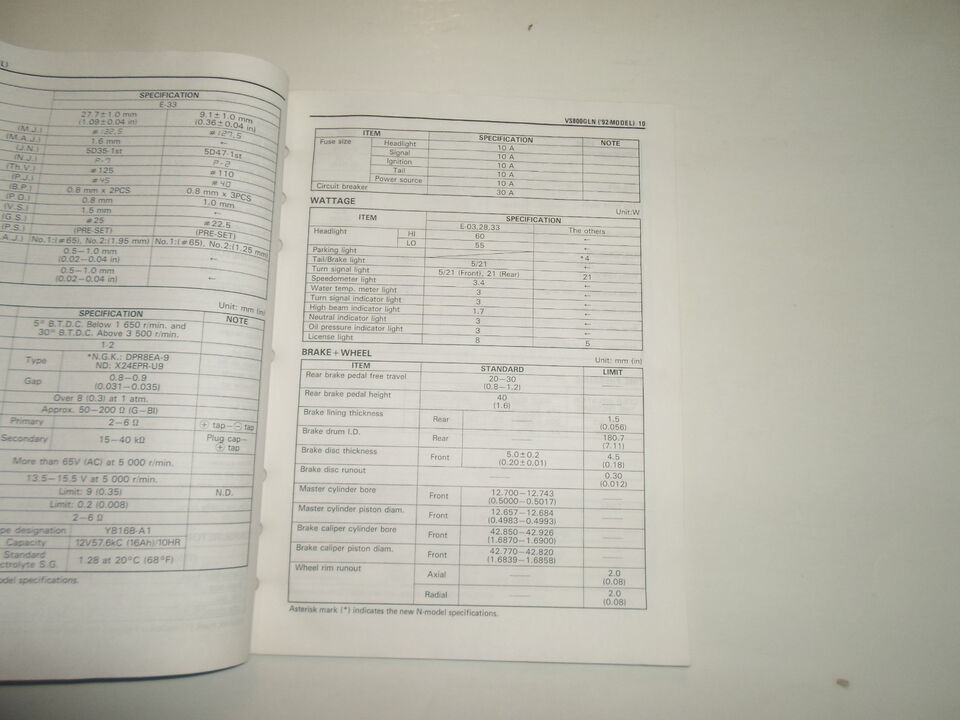 L)
SPECIFICATION
E-33
27.7±1.0 mm 9.1±1.0 mm
(1.09±0.04 in) (0.36±0.04 in)
(M.J.) #132.5 #127.5
(M.A.J.) 1.6 mm ←
(J.N.) 5D35-1st 5D47-1st
(N.J.) P-7 P-2
(Th.V.) #125 #110
(P.J.) #45 #40
(B.P.) 0.8 mm x 2PCS 0.8 mm x 3PCS
(P.O.) 0.8 mm 1.0 mm
(V.S.) 1.5 mm ←
(G.S.) #25 #22.5
(P.S.) (PRE-SET) (PRE-SET)
A.J.) No.1:(#65), No.2:(1.95 mm) No.1:(#65), No.2:(1.25 mm)
0.5-1.0 mm ←
(0.02-0.04 in)
0.5-1.0 mm ←
(0.02-0.04 in)
Unit: mm (in)
SPECIFICATION NOTE
5° B.T.D.C. Below 1 650 r/min. and
30° B.T.D.C. Above 3 500 r/min.
1-2
Type *N.G.K.: DPR8EA-9
ND: X24EPR-U9
Gap 0.8-0.9
(0.031-0.035)
Over 8 (0.3) at 1 atm.
Approx. 50-200 Ω (G-Bl)
Primary 2-6 Ω ⊕ tap-⊖ tap
Secondary 15-40 kΩ Plug cap-
⊕ tap
More than 65V (AC) at 5 000 r/min.
13.5-15.5 V at 5 000 r/min.
Limit: 9 (0.35) N.D.
Limit: 0.2 (0.008)
2-6 Ω
pe designation YB16B-A1
Capacity 12V57.6kC (16Ah)/10HR
Standard
ctrolyte S.G. 1.28 at 20°C (68°F)
odel specifications.
VS800GLN ('92-MODEL) 10
ITEM SPECIFICATION NOTE
Fuse size Headlight 10 A
Signal 10 A
Ignition 10 A
Tail 10 A
Power source 10 A
Circuit breaker 30 A
WATTAGE
Unit:W
ITEM SPECIFICATION
E-03,28,33 The others
Headlight HI 60 ←
LO 55 ←
Parking light *4
Tail/Brake light 5/21 ←
Turn signal light 5/21 (Front), 21 (Rear) 21
Speedometer light 3.4 ←
Water temp. meter light 3 ←
Turn signal indicator light 3 ←
High beam indicator light 1.7 ←
Neutral indicator light 3 ←
Oil pressure indicator light 3 ←
License light 8 5
BRAKE+WHEEL
Unit: mm (in)
ITEM STANDARD LIMIT
Rear brake pedal free travel 20-30
(0.8-1.2)
Rear brake pedal height 40
(1.6)
Brake lining thickness Rear 1.5
(0.056)
Brake drum I.D. Rear 180.7
(7.11)
Brake disc thickness Front 5.0±0.2 4.5
(0.20±0.01) (0.18)
Brake disc runout 0.30
(0.012)
Master cylinder bore Front 12.700-12.743
(0.5000-0.5017)
Master cylinder piston diam. Front 12.657-12.684
(0.4983-0.4993)
Brake caliper cylinder bore Front 42.850-42.926
(1.6870-1.6900)
Brake caliper piston diam. Front 42.770-42.820
(1.6839-1.6858)
Wheel rim runout Axial 2.0
(0.08)
Radial 2.0
(0.08)
Asterisk mark (*) indicates the new N-model specifications.